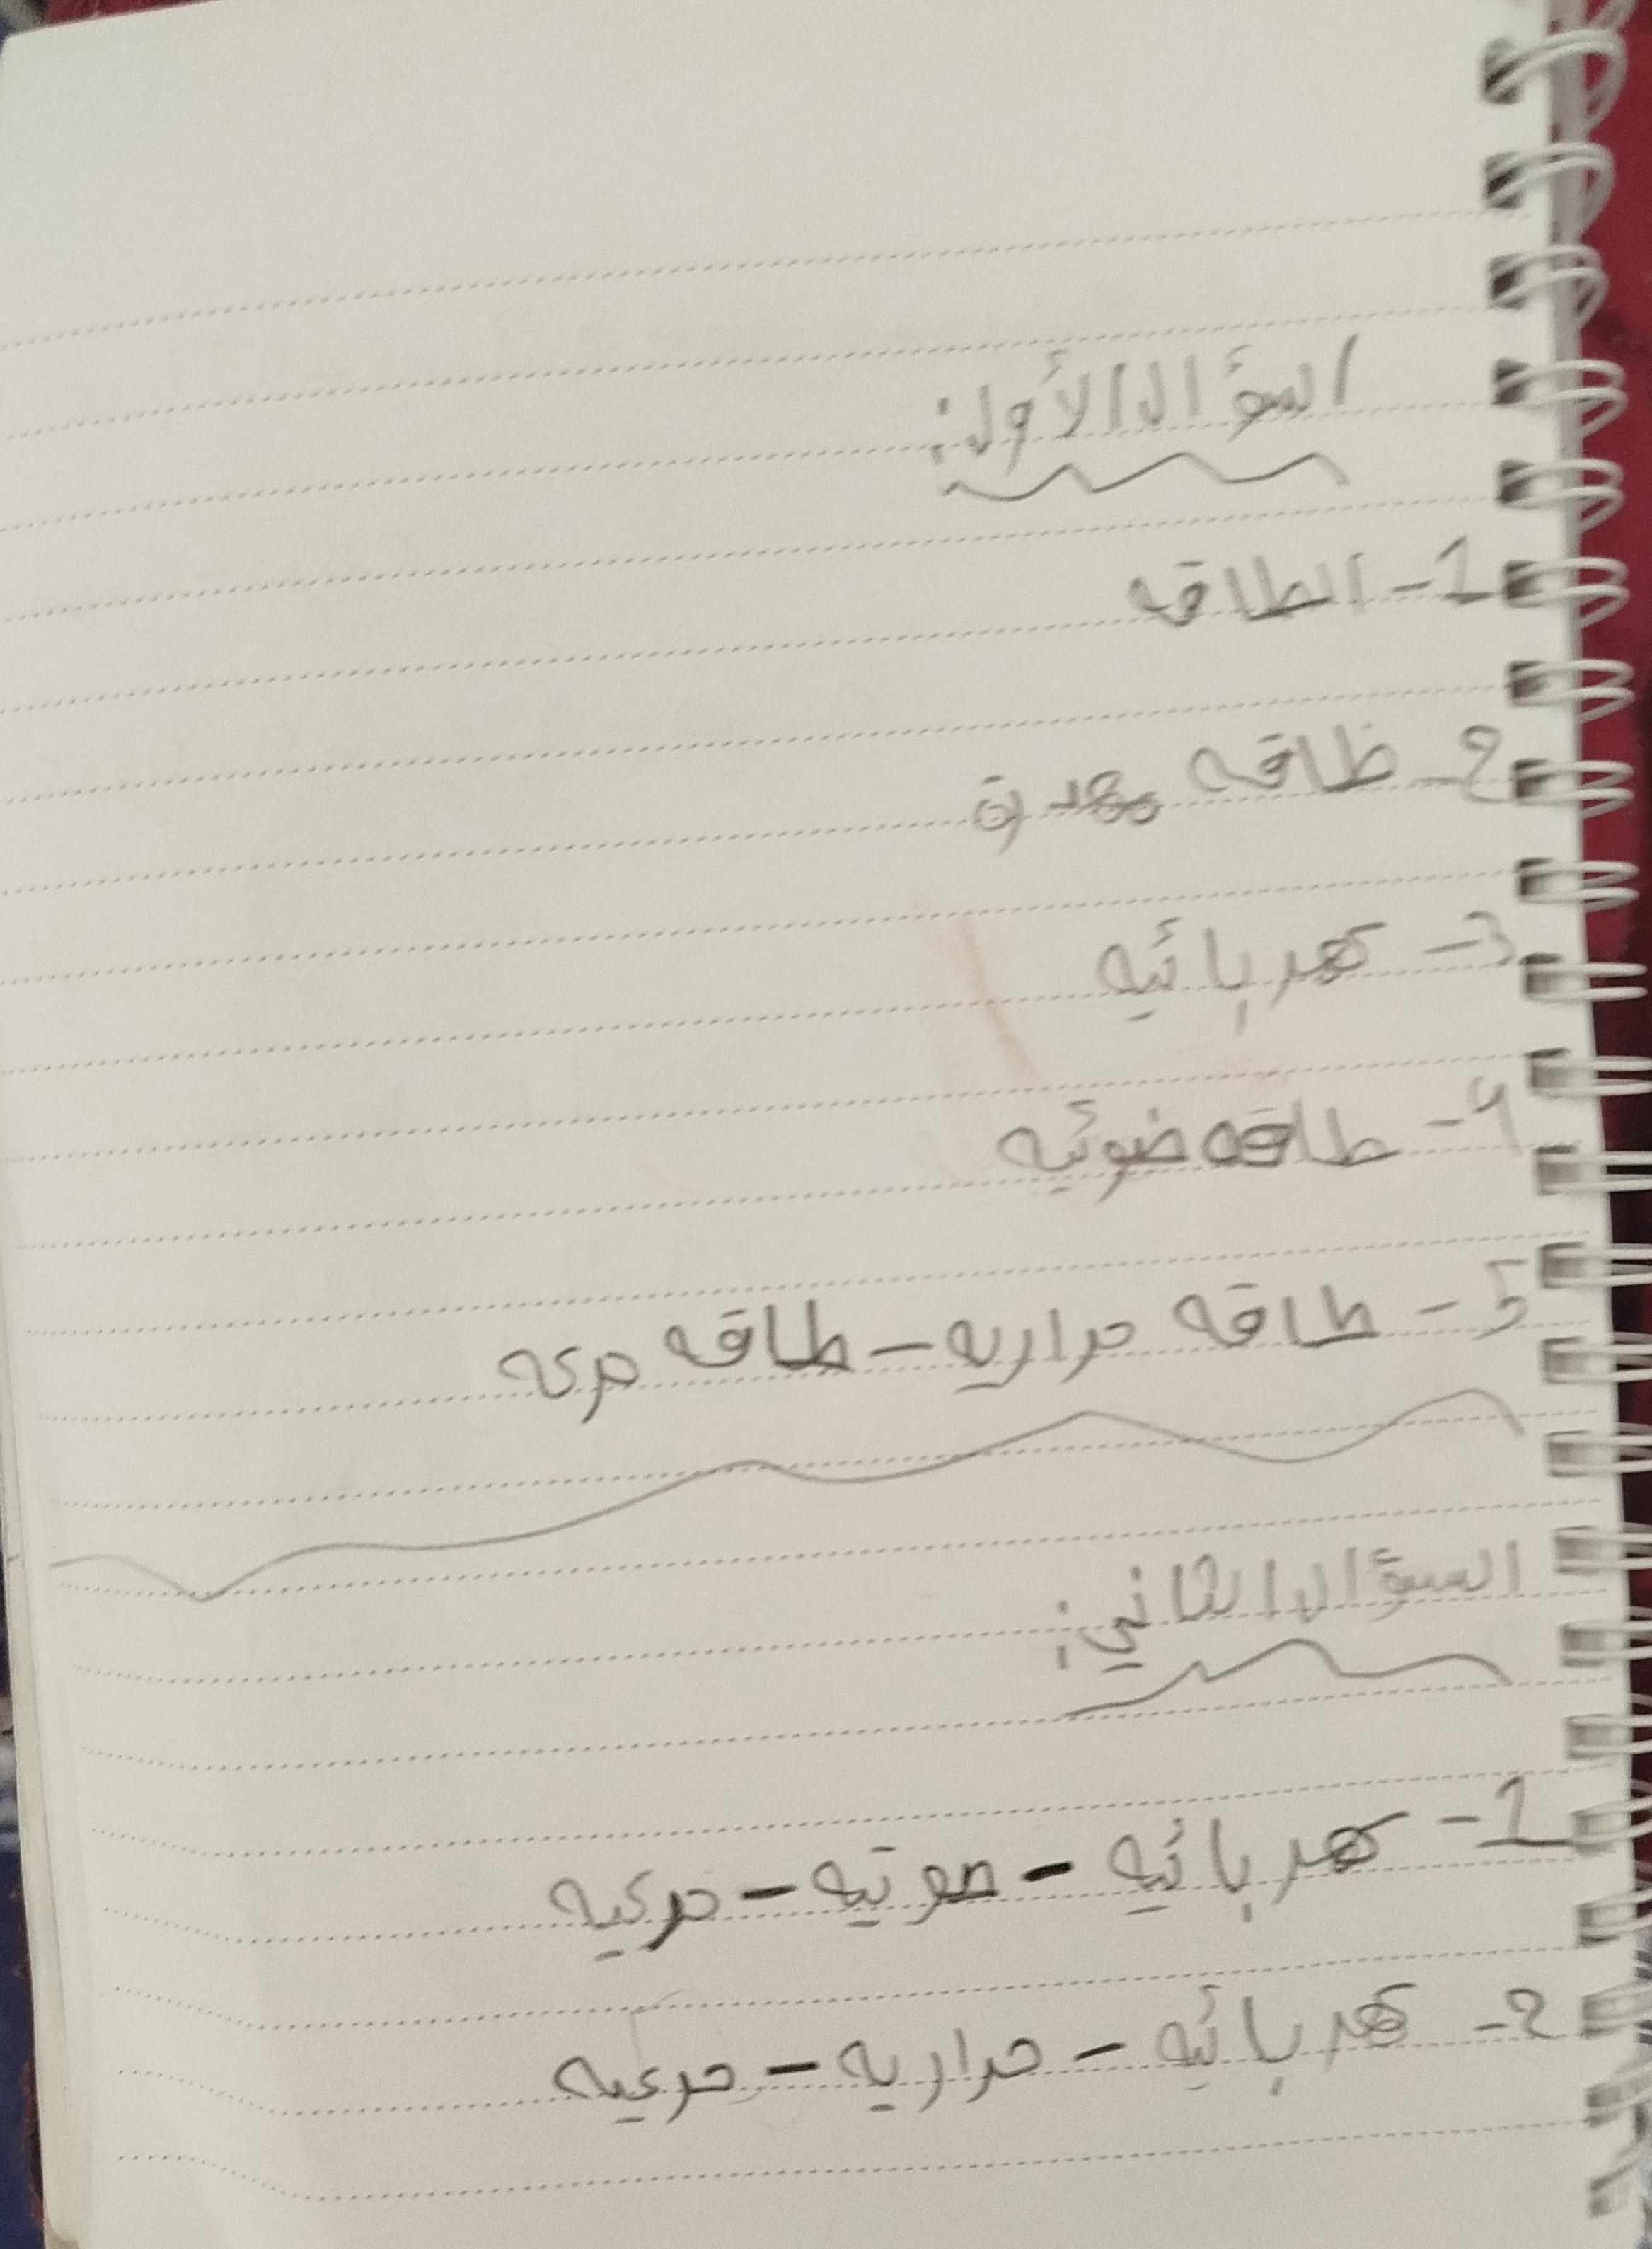 السؤال الأول:
1- الطاقه
2- طاقه مهدرة
3- كهربائيه
4- طاقه ضوئيه
5- طاقه حراريه - طاقه حركه
السؤال الثاني:
1- كهربائيه - صوتيه - حركيه
2- كهربائيه - حراريه - حركيه